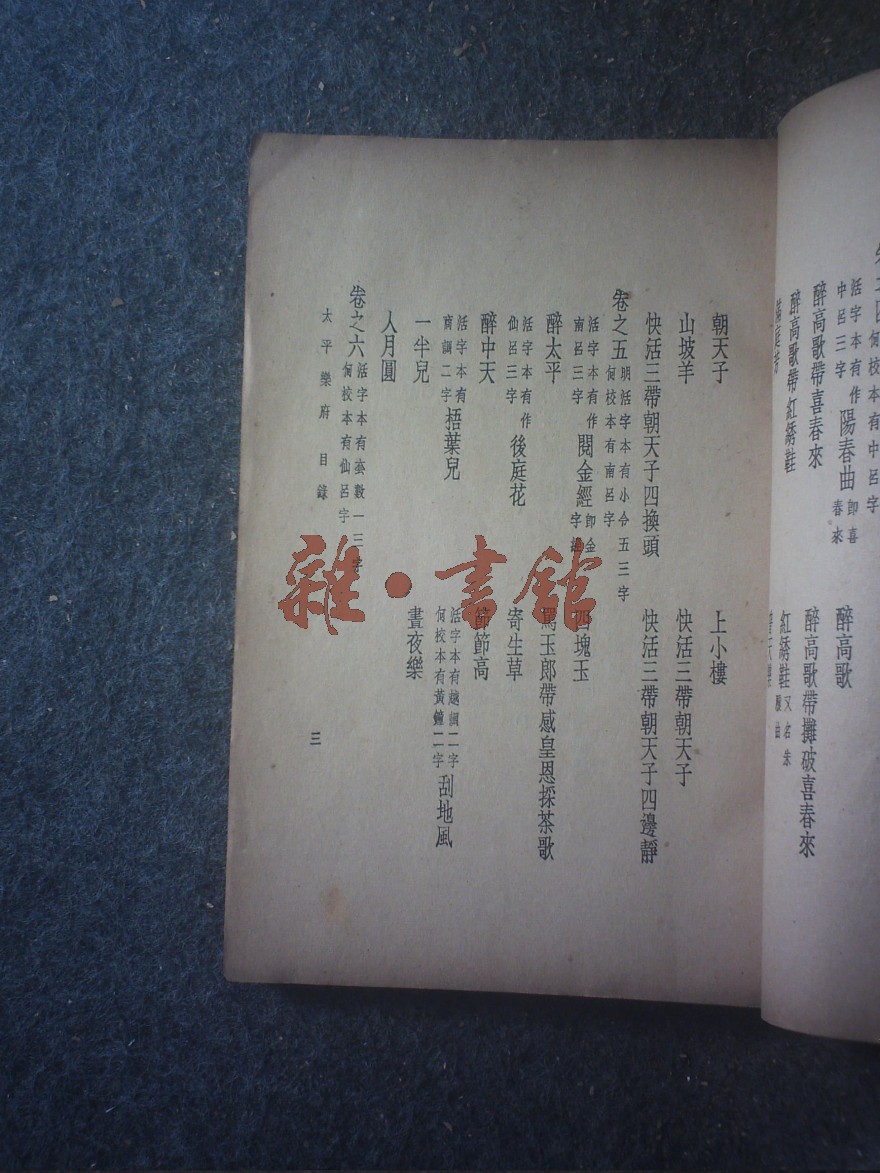 中呂三字
活字本有作
陽春曲
即喜春來
醉高歌
醉高歌帶喜春來
醉高歌帶攤破喜春來
醉高歌帶紅綉鞋
紅綉鞋
又名朱履曲
滿庭芳
朝天子
上小樓
山坡羊
快活三帶朝天子
快活三帶朝天子四換頭
快活三帶朝天子四邊靜
卷之五
明活字本有小令五三字
何校本有南呂字
活字本有作
南呂三字
閱金經
即金字經
四塊玉
醉太平
罵玉郎帶感皇恩採茶歌
活字本有作
仙呂三字
後庭花
寄生草
醉中天
節節高
活字本有
商調二字
梧葉兒
活字本有越調二字
何校本有黃鐘二字
刮地風
一半兒
晝夜樂
人月圓
卷之六
活字本有套數一三字
何校本有仙呂字
太平樂府 目錄
三
雜·書館